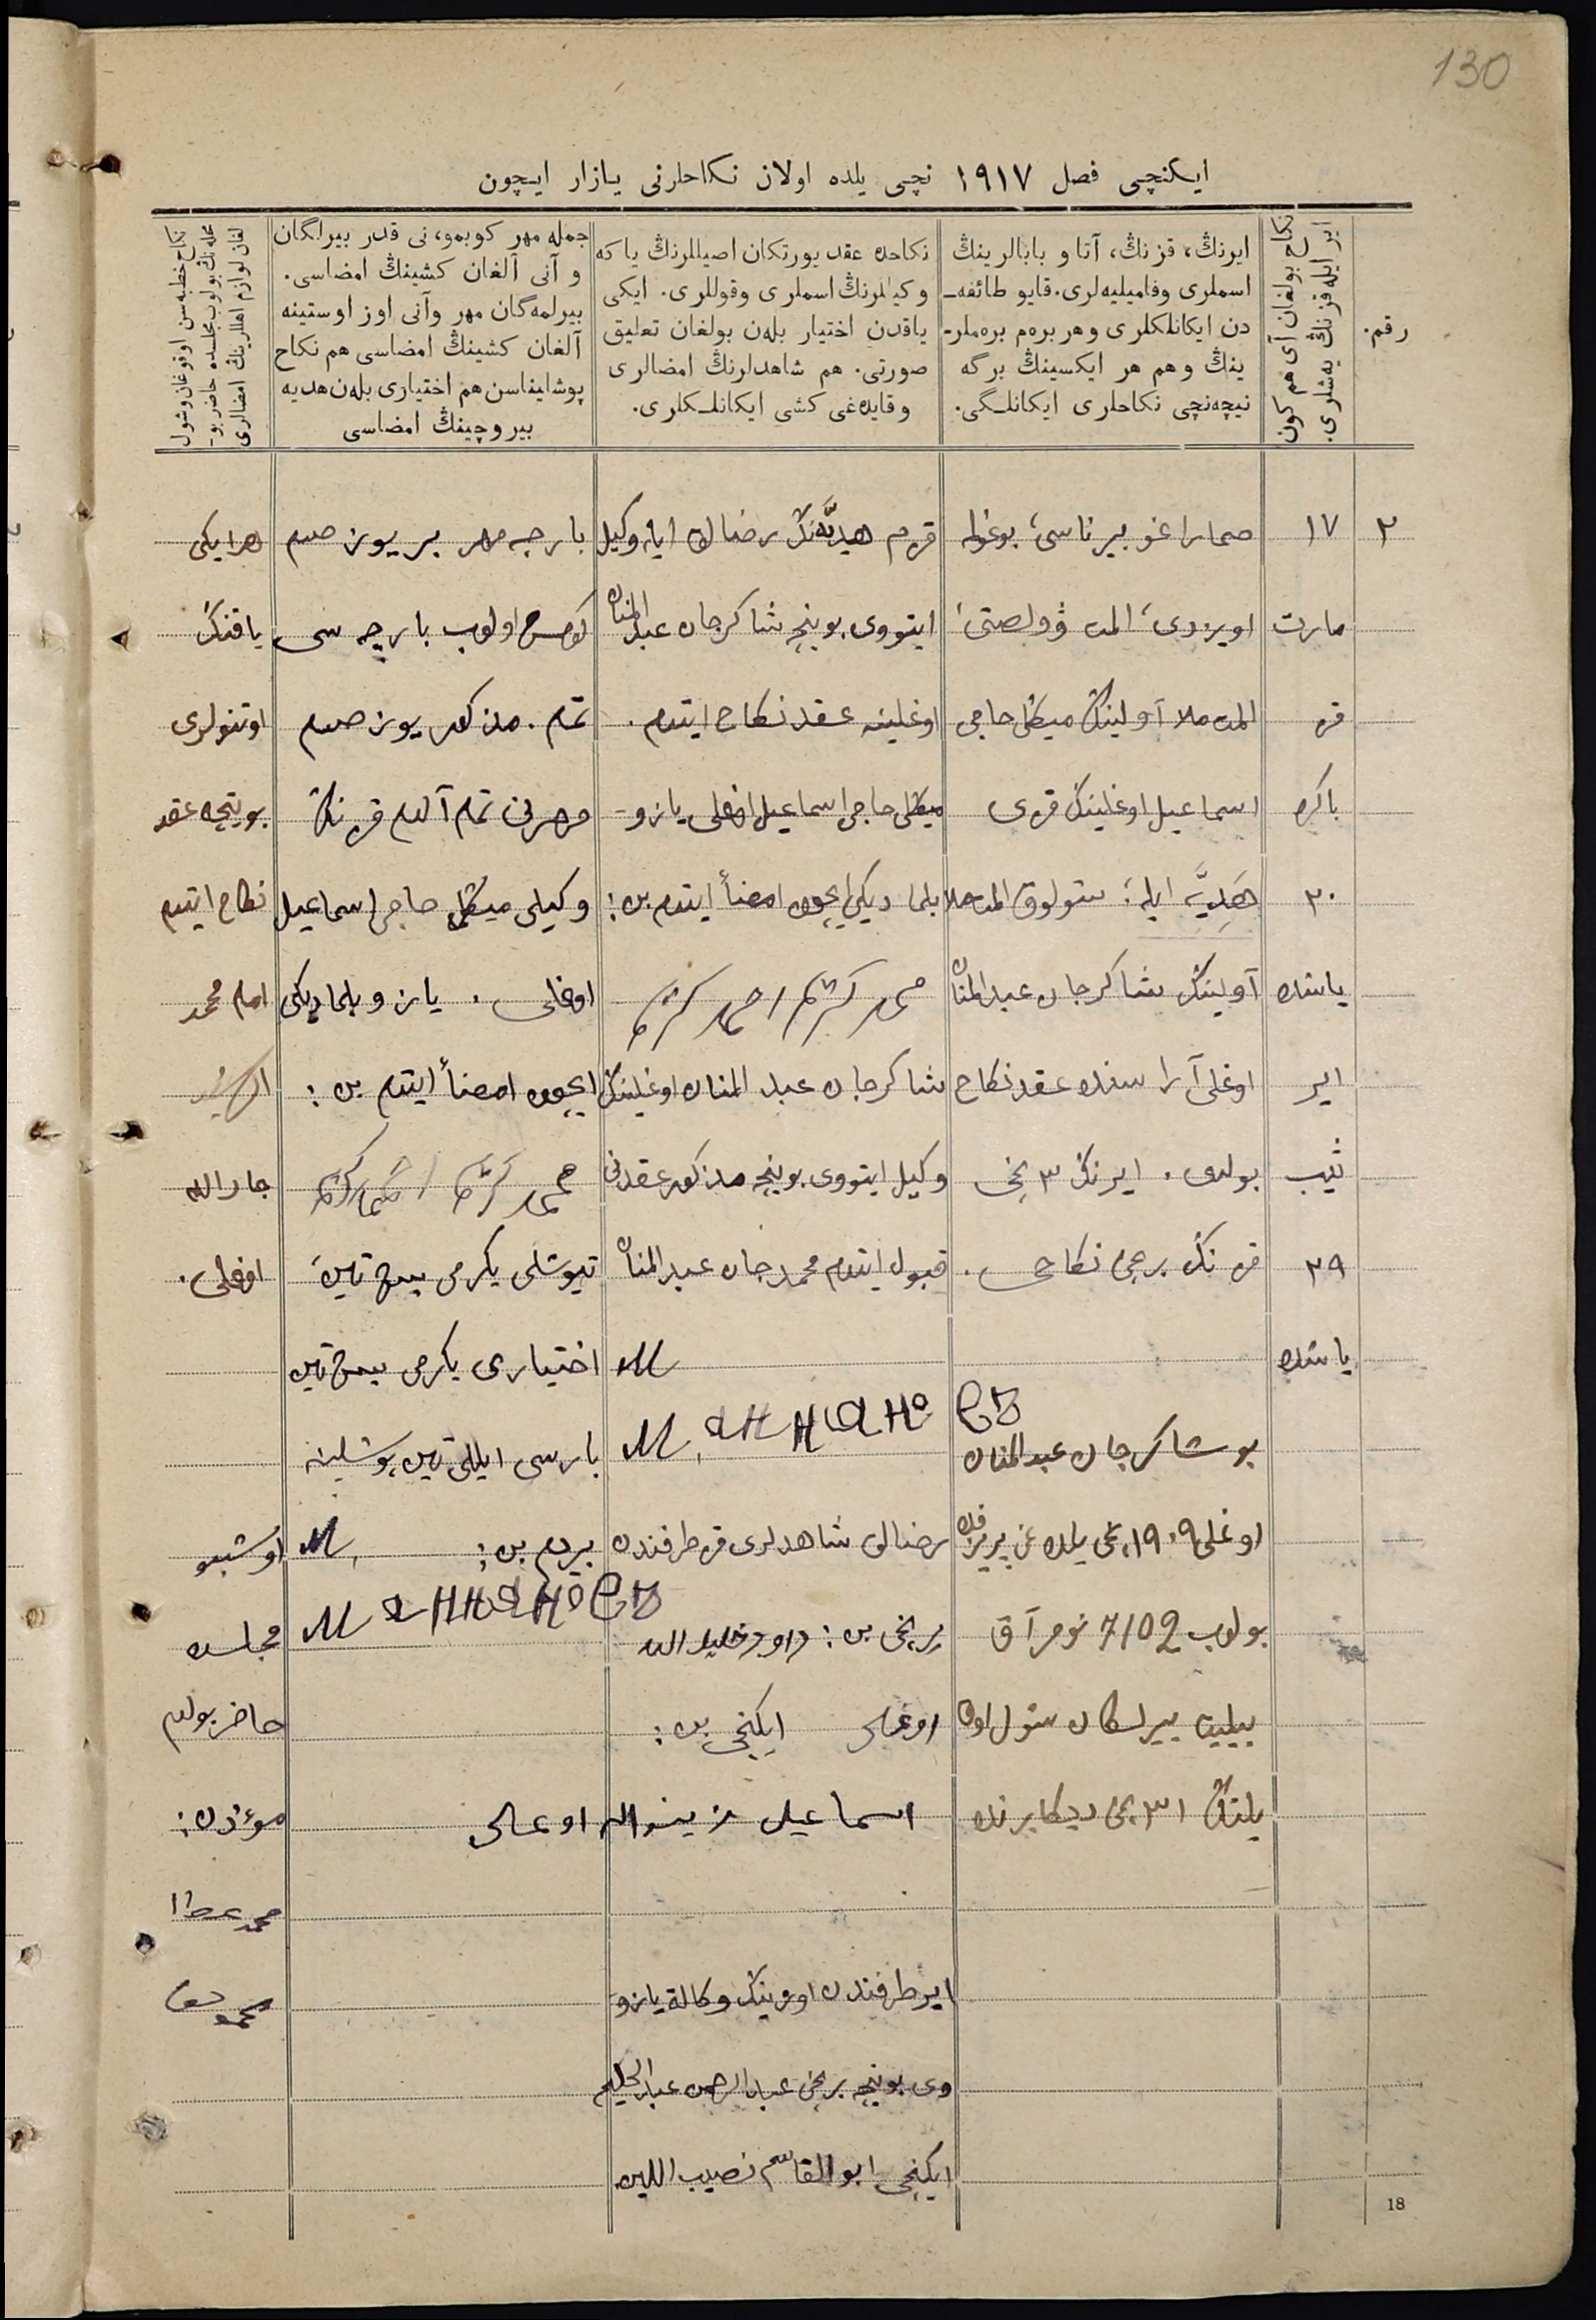 130
ایکنچی فصل ۱۹۱۷ نچی یلده اولان نکاحلرنی یازار ایچون
رقم.
نکاح بولغان آی هم کون
ایر ایله قزنڭ یەشلری.
ایرنڭ، قزنڭ، آتا و بابالرینڭ
اسملری وفامیلیەلری. قایو طائفە-
دن ایکانلکلری وهر برەم برەملر-
ینڭ وهم هر ایکسینڭ برگه
نیچەنچی نکاحلری ایکانلـگی.
نکاحده عقد یورتکان اصیللرنڭ یاکه
وکیللرنڭ اسملری وقوللری. ایکی
یاقدن اختیار بلەن بولغان تعلیق
صورتی. هم شاهدلرنڭ امضالری
وقایدەغی کشی ایکانلـکلری.
جمله مهر کوبمو، نی قدر بیرلگان
و آنی آلغان کشینڭ امضاسی.
بیرلمەگان مهر وآنی اوز اوستینه
آلغان کشینڭ امضاسی هم نکاح
پوشلیناسن هم اختیاری بلەن هدیه
بیروچینڭ امضاسی
نکاح خطبەسن اوقوغان وشول
محلەنڭ بولوب مجلسده حاضر بو-
لغان لوازم اهللرینڭ امضالری
۲
۱۷
مارت
قز
باکره
۲۰
یاشده
ایر
ثیب
۲۹
یاشده
صمارا غوبیرناسی، بوغولمه
اویزدی، المت ڤولصتی،
المت ملا آولینڭ میڭلی حاجی
اسماعیل اوغلینڭ قزی
هَدِیَّه ایله؛ شولوق المت ملا
آولینڭ شاکرجان عبدالمنان
اوغلی آراسنده عقد نکاح
بولدی. ایرنڭ ۳ نچی
قزنڭ برنچی نکاحی.
بو شاکرجان عبدالمنان
اوغلی ۱۹۰۹ نچی یلده
بولوب 7102 نومر آق
بیلیت بیرلگان شول اوق
یلنڭ ۳۱ نچی دیکابرنده
قزم هدیَّه نڭ رضالق ایله وکیل
ایتووی بوینچه شاکرجان عبدالمنان
اوغلینه عقد نکاح ایتدم.
میڭلی حاجی اسماعیل اوغلی یازو-
بلمادیکی ایچون امضأ ایتدم بن:
شاکرجان عبدالمنان اوغلینڭ
وکیل ایتووی بوینچه مذکور عقدنی
قبول ایتدم محمدجان عبدالمنان
رضالق شاهدلری قز طرفندن
برنچی بن: داود خلیل الله
اوغلی ایکنچی بن:
اسماعیل زین الله اوغلی
ایر طرفندن اوزینڭ وکالة یازو-
وی بوینچه برنچی عبدالرحمن عبدالحلیم
ایکنچی ابوالقاسم نصیب اللین
بارچه مهر بر یوز صوم
کومش اولوب بارچه سی
تمام. مذکور یوز صوم
مهرنی تمام آلدم قزنڭ
وکیلی میڭلی حاجی اسماعیل
اوغلی. یازو بلمادیکی
ایچون امضأ ایتدم بن:
تیوشلی یکرمی بیش تین
اختیاری یکرمی بیش تین
بارسی ایللی تین پوشلینه
بیردم بن:
هر ایکی
یاقنڭ
اوتنولری
بوینچه عقد
نکاح ایتدم
امام محمد
جارالله
اوغلی.
اوشبو
مجلسده
حاضر بولدم
مؤذن:
محمد عطا
18